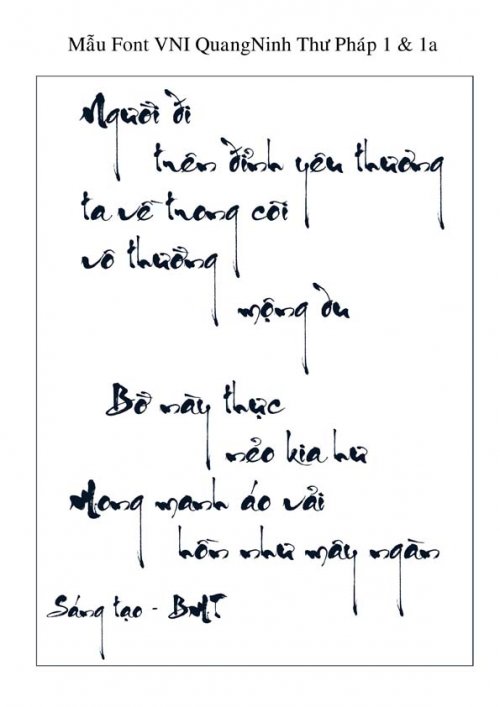 Mẫu Font VNI QuangNinh Thư Pháp 1 & 1a
Người đi
trên đỉnh yêu thương
ta về trong cõi
vô thường
mộng du
Bờ này thực
nẻo kia hư
Mong manh áo vải
hồn như mây ngàn
Sáng tạo - BMT